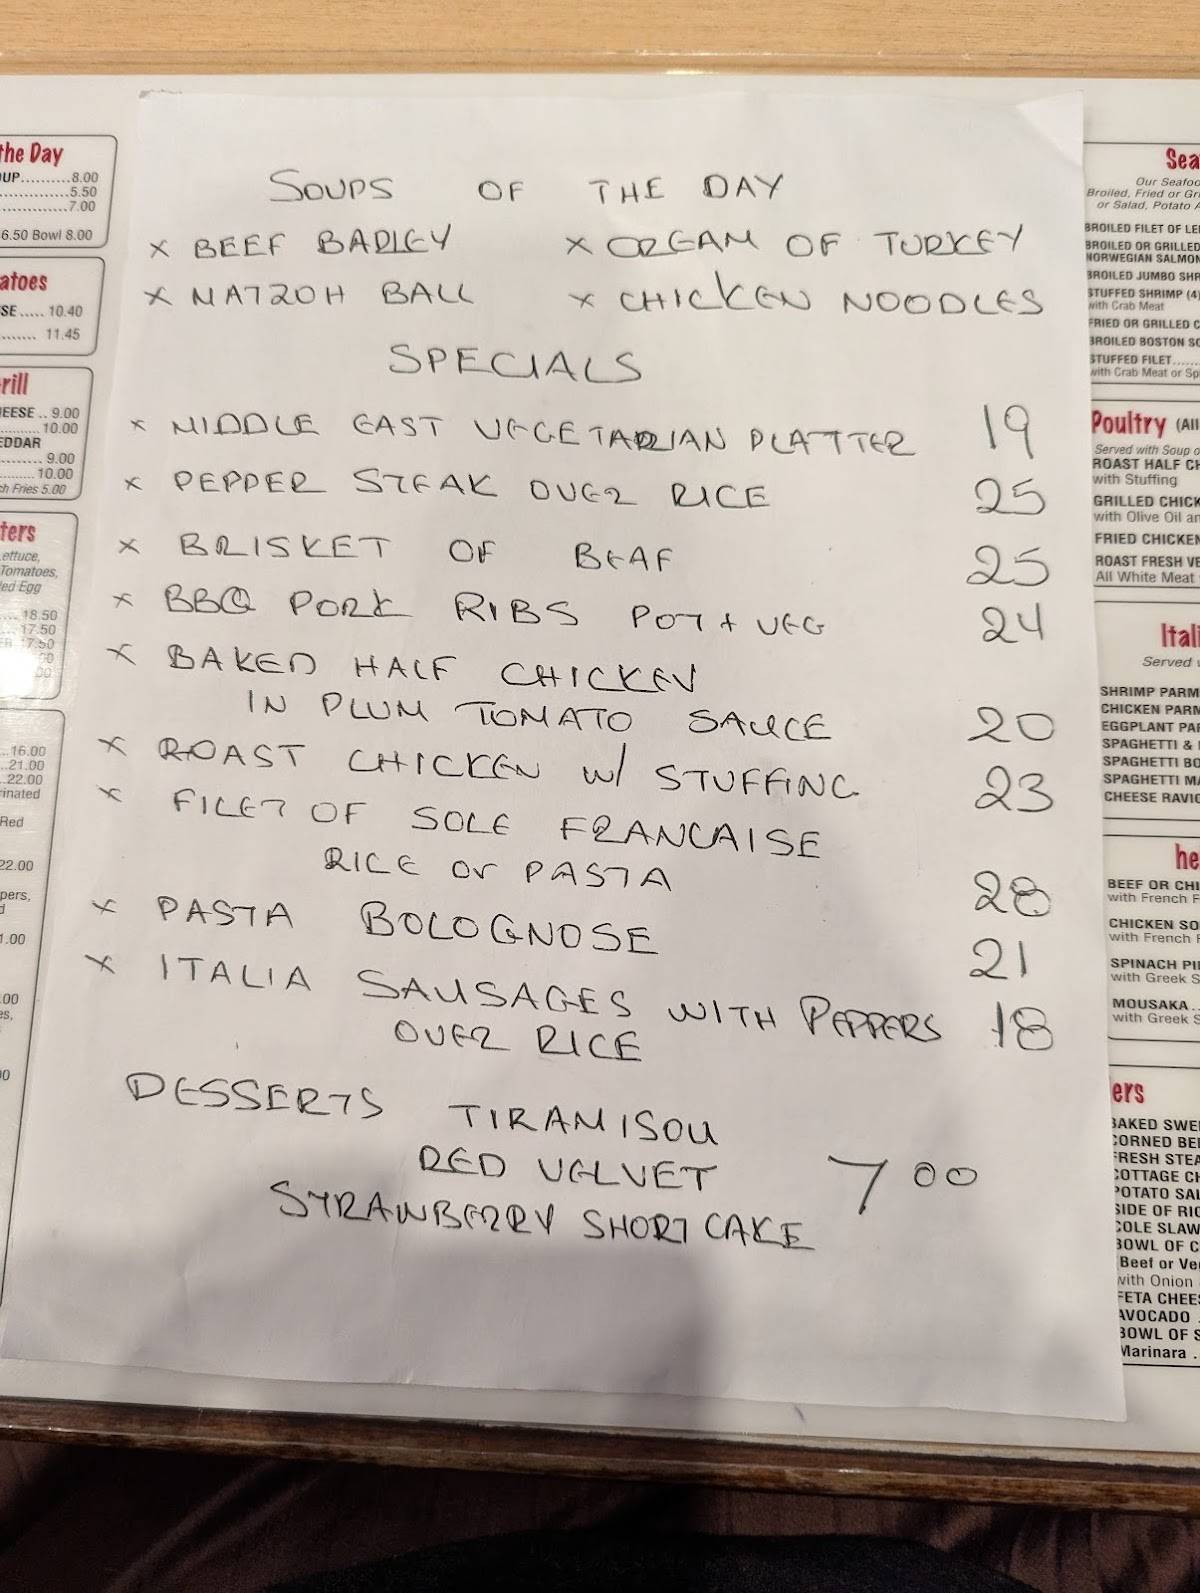 SOUPS OF THE DAY
x BEEF BARLEY x CREAM OF TURKEY
x MATZOH BALL x CHICKEN NOODLES
SPECIALS
x MIDDLE EAST VEGETARIAN PLATTER 19
x PEPPER STEAK OVER RICE 25
x BRISKET OF BEAF 25
x BBQ PORK RIBS POT + VEG 24
x BAKED HALF CHICKEN
IN PLUM TOMATO SAUCE 20
x ROAST CHICKEN W/ STUFFING 23
x FILET OF SOLE FRANCAISE
RICE or PASTA 28
x PASTA BOLOGNOSE 21
x ITALIA SAUSAGES WITH PEPPERS 18
OVER RICE
DESSERTS TIRAMISOU
RED VELVET 7 00
STRAWBERRY SHORT CAKE
the Day
UP.........8.00
5.50
7.00
6.50 Bowl 8.00
atoes
SE..... 10.40
11.45
rill
EESE .. 9.00
10.00
EDDAR
9.00
10.00
ch Fries 5.00
ters
ettuce,
Tomatoes,
led Egg
18.50
17.50
17.50
16.00
21.00
22.00
rinated
Red
22.00
pers,
1.00
.00
es,
Sea
Our Seafoo
Broiled, Fried or Gr
or Salad, Potato
BROILED FILET OF LE
BROILED OR GRILLED
NORWEGIAN SALMON
BROILED JUMBO SHR
STUFFED SHRIMP (4)
with Crab Meat
FRIED OR GRILLED C
BROILED BOSTON SC
STUFFED FILET
with Crab Meat or Sp
Poultry (All
Served with Soup o
ROAST HALF CH
with Stuffing
GRILLED CHICK
with Olive Oil an
FRIED CHICKEN
ROAST FRESH VE
All White Meat
Itali
Served
SHRIMP PARM
CHICKEN PARM
EGGPLANT PAR
SPAGHETTI &
SPAGHETTI BO
SPAGHETTI MA
CHEESE RAVIO
he
BEEF OR CHI
with French F
CHICKEN SO
with French F
SPINACH PIE
with Greek S
MOUSAKA
with Greek S
ers
BAKED SWE
CORNED BEE
FRESH STEA
COTTAGE CH
POTATO SAL
SIDE OF RIC
COLE SLAW
BOWL OF C
Beef or Ve
with Onion
FETA CHEES
AVOCADO
BOWL OF S
Marinara